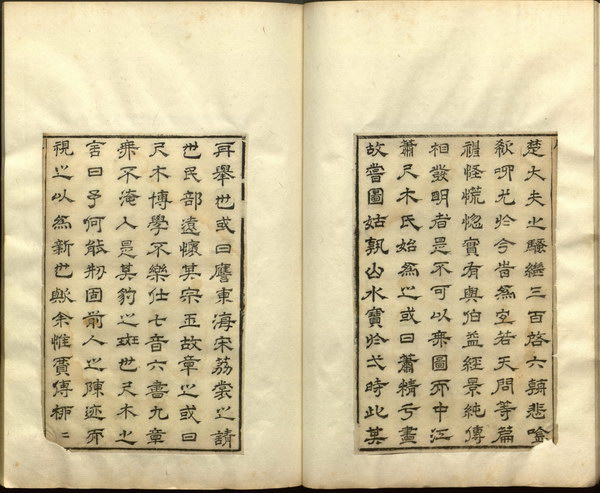 楚大夫之騷繼三百啓六朝悲唫
欷唧尤於今昔為宜若天問等篇
怪慌惚實有與伯益經景純傳
相發明者是不可以無圖而中江
蕭尺木氏始為之或曰蕭精亏畫
故嘗圖姑孰山水寶於弌時此其
再舉也或曰譍東海宋荔裳之請
也民部遠懷其宗玉故章之或曰
尺木博學不樂仕七音六書九章
無不淹人是其豹之斑也尺木之
言曰予何能剏固前人之陳迹而
視之以為新也歟余惟賈傅柳二